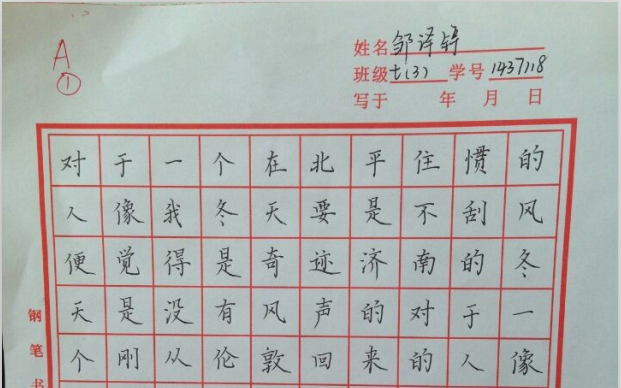 A
①
姓名 邹译锌
班级 七(3) 学号 1437118
写于 年 月 日
对于一个在北平住惯的
人像我冬天要是不刮风
便觉得是奇迹济南的冬
天是没有风声的对于一
个刚从伦敦回来的人像
钢笔书